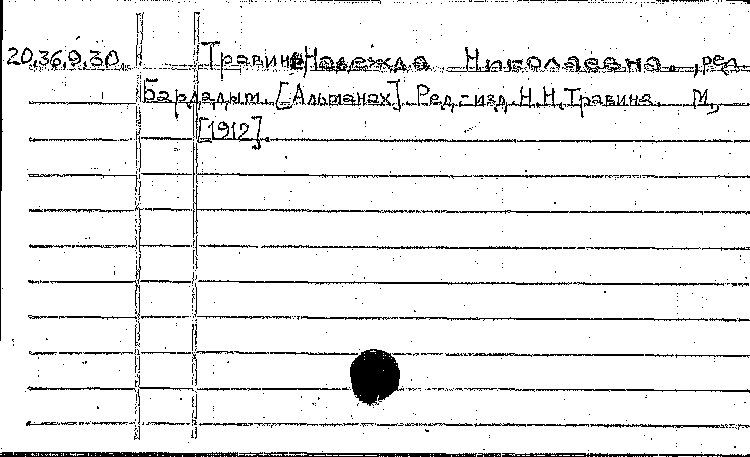 20.36.9.30. Травина Надежда Николаевна, ред.
Бардадым. [Альманах]. Ред.-изд. Н.Н.Травина. М.,
[1912].